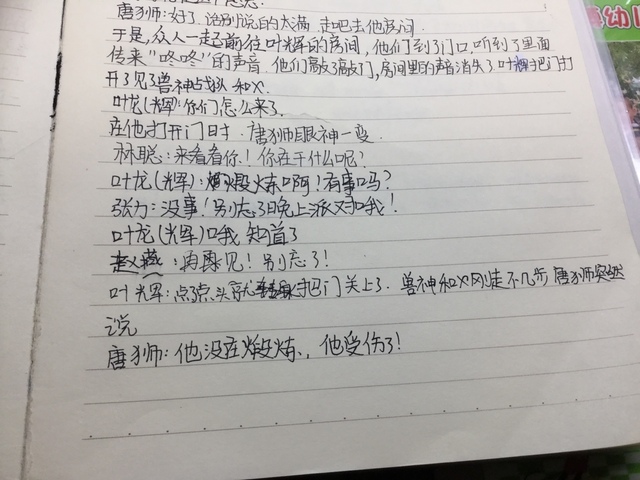 唐狮:好了.话别说的太满.走吧去他房间.
于是,众人一起前往叶辉的房间,他们到了门口,听到了里面
传来"咚咚"的声音.他们敲了敲门,房间里的声音消失了叶辉把门打
开了见了兽神战队和X.
叶龙(辉):你们怎么来了.
在他打开门时.唐狮眼神一变.
林聪:来看看你!你在干什么呢?
叶龙(辉):锻炼啊!有事吗?
张力:没事!别忘了晚上派对哦!
叶龙(辉)哦我知道了
赵燕:再见!别忘了!
叶辉:点了点头就把门关上了.兽神和X刚走不几步唐狮突然
说
唐狮:他没在锻炼.,他受伤了!
幼